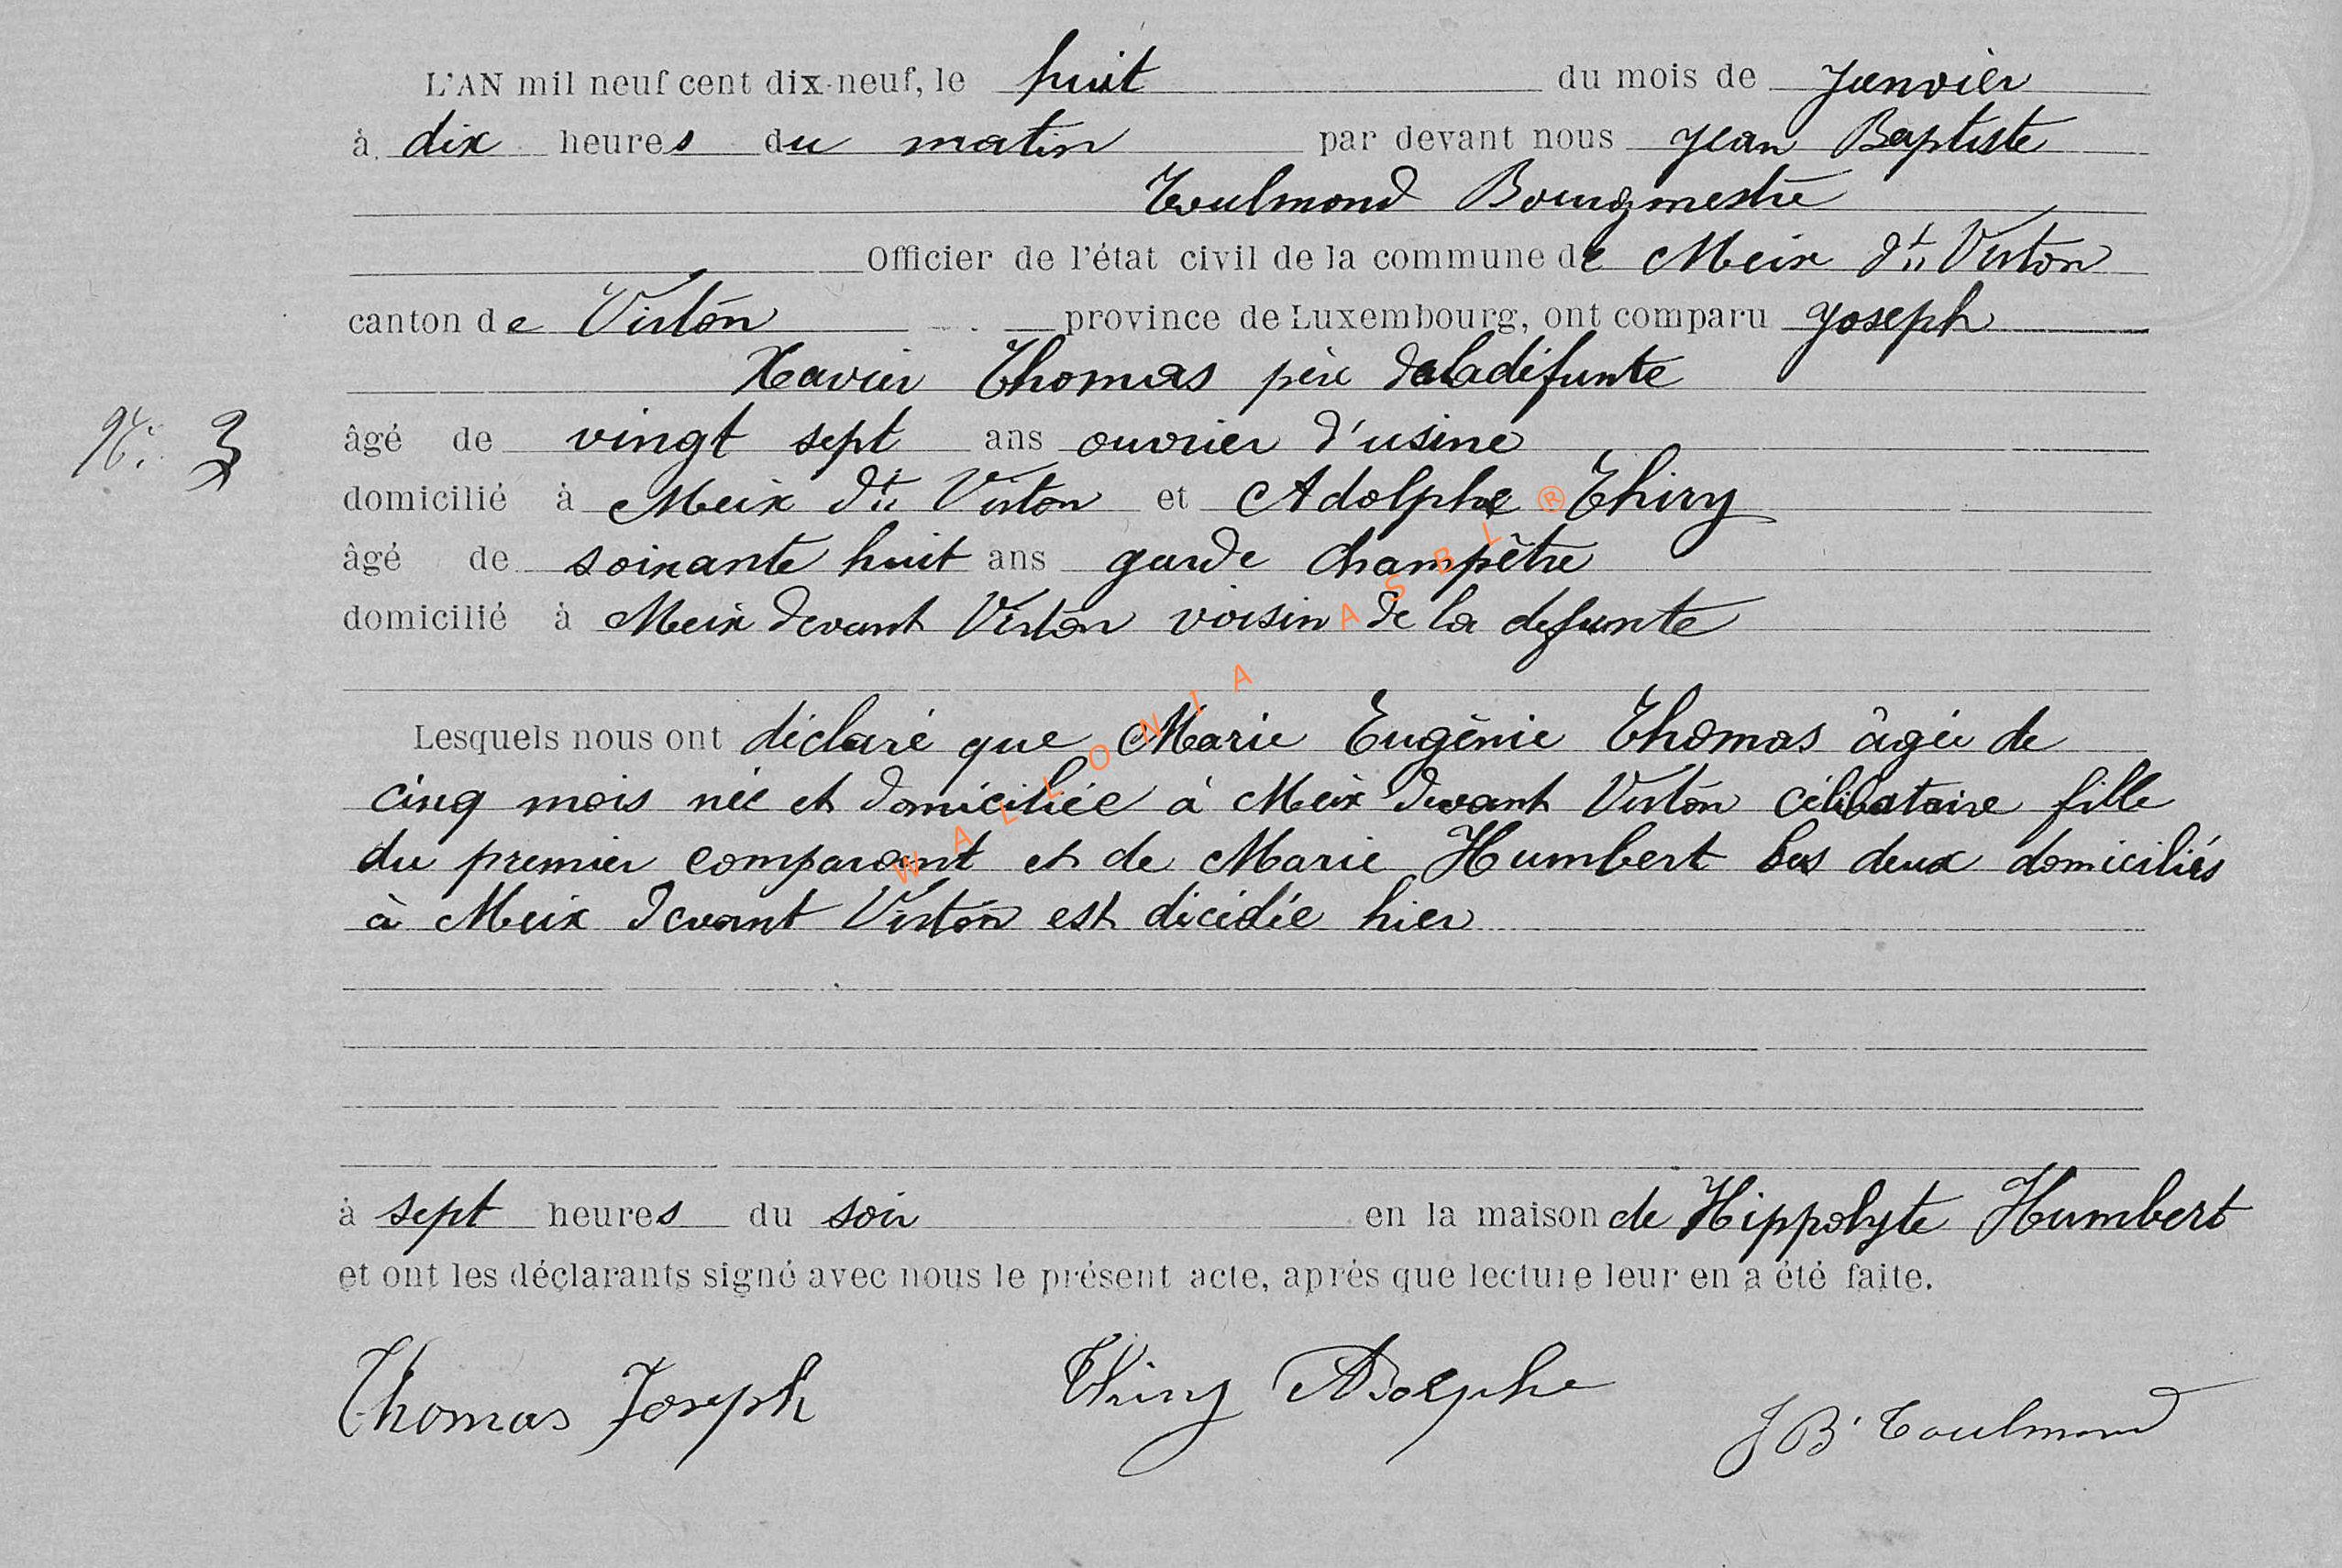 L'AN mil neuf cent dix-neuf, le huit du mois de Janvier
à dix heures du matin par devant nous Jean Baptiste
Toulmond Bourgmestre
Officier de l'état civil de la commune de Meix dt Virton
canton de Virton province de Luxembourg, ont comparu Joseph
Xavier Thomas père de la défunte
N° 3
âgé de vingt sept ans ouvrier d'usine
domicilié à Meix dt Virton et Adolphe Thiry
âgé de soixante huit ans garde champêtre
domicilié à Meix devant Virton voisin de la defunte
Lesquels nous ont déclaré que Marie Eugénie Thomas âgée de
cinq mois née et domiciliée à Meix devant Virton célibataire fille
du premier comparant et de Marie Humbert les deux domiciliés
à Meix devant Virton est dicédée hier
à sept heures du soir en la maison de Hippolyte Humbert
et ont les déclarants signé avec nous le présent acte, après que lecture leur en a été faite.
Thomas Joseph Thiry Adolphe JB Toulmond
WALLONIA ASBL ®